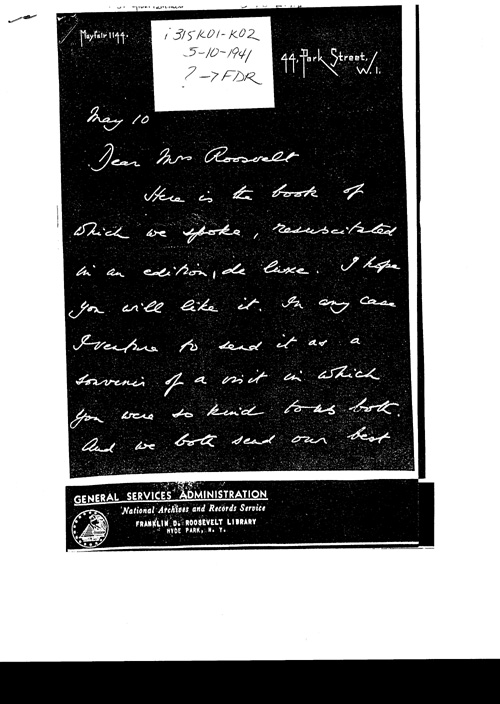 Mayfair 1144.
i315K01-K02
5-10-1941
? → FDR
44, Park Street,
W.1.
May 10
Dear Mrs Roosevelt
Here is the book of
which we spoke, resuscitated
in an edition, de luxe. I hope
you will like it. In any case
I venture to send it as a
souvenir of a visit in which
you were so kind to us both.
And we both send our best
GENERAL SERVICES ADMINISTRATION
National Archives and Records Service
FRANKLIN D. ROOSEVELT LIBRARY
HYDE PARK, N. Y.